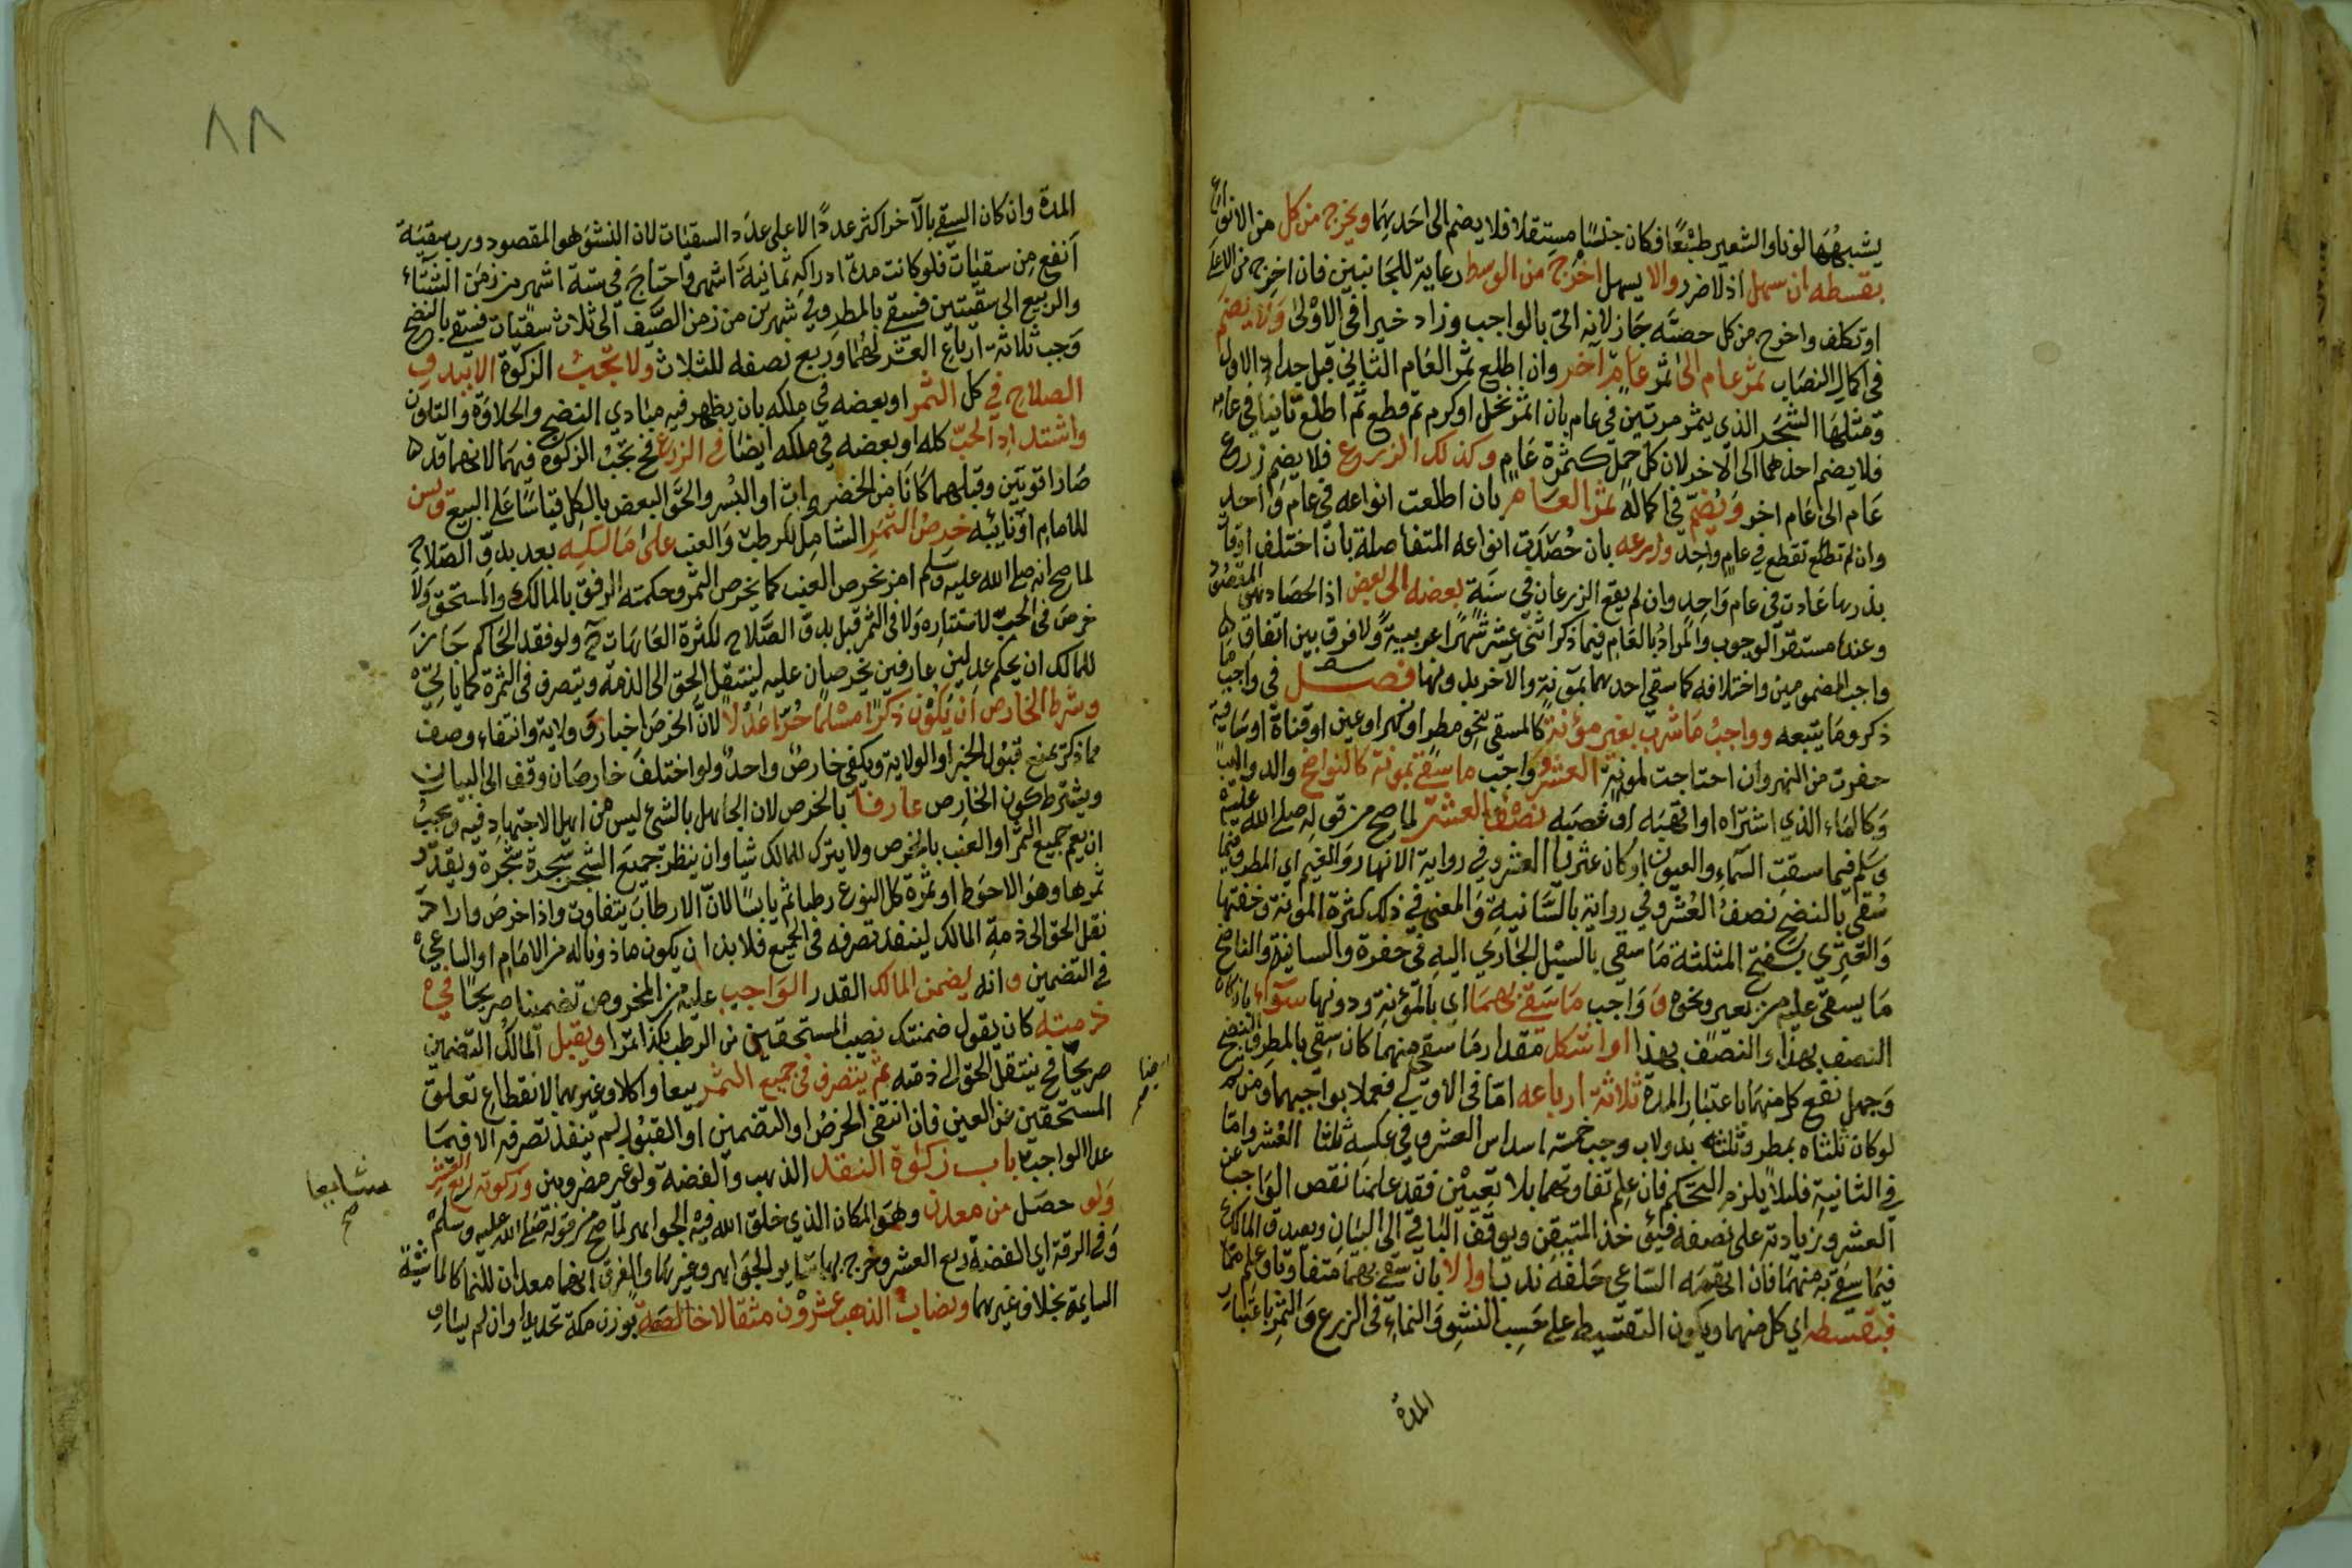 يشبههما لونا والشعير طبعا فكان جنسا مستقلا فلا يضم الى احدهما ويخرج من كل من الانواع
بقسطه ان سهل اذ لا ضرر والا يسهل اخرج من الوسط رعاية للجانبين فان اخرج من الاعلى
او تكلف واخرج من كل حصته جاز لانه اتى بالواجب وزاد خيرا في الاولى ولا يضم
في اكمال النصاب ثمر عام الى ثمر عام آخر وان اطلع ثمر العام الثاني قبل جداد الاول
ومثلها الشجر الذي يثمر مرتين في عام بان اثمر نخل او كرم ثم قطع ثم اطلع ثانيا في عامه
فلا يضم احدهما الى الآخر لان كل حمل كثمرة عام وكذلك الزروع فلا يضم زرع
عام الى عام اخر ويضم في اكماله ثمر العام بان اطلعت انواعه في عام واحد
وان لم تطلع تقطع في عام واحد وزرعه بان حصدت انواعه المتفاصلة بان اختلف اوقات
بذرها عادت في عام واحد وان لم يقع الزرعان في سنة بعضه الى بعض اذ الحصاد هو المقصود
وعنده مستقر الوجوب والمراد بالعام فيما ذكر اثنى عشر شهرا عربية ولا فرق بين اتفاق
واجب المضمومين واختلافه كما سقي احدهما بمؤنة والآخر بدونها فصل في واجب ما
ذكر وما يتبعه وواجب ما شرب بغير مؤنة كالمسقي بنحو مطر او نهر او عين او قناة او ساقية
حفرت من النهر وان احتاجت لمؤنة العشر وواجب ما سقي بمؤنة كالنواضح والدواليب
وكالماء الذي اشتراه او اتهبه او غصبه نصف العشر لما صح من قوله صلى الله عليه
وسلم فيما سقت السماء والعيون او كان عثريا العشر وفي رواية الانهار والغيم اي المطر وفيما
سقي بالنضح نصف العشر وفي رواية بالسانية والمعنى في ذلك كثرة المؤنة وخفتها
والعثري بفتح المثلثة ما سقي بالسيل الجاري اليه في حفرة والسانية والناضح
ما يسقى عليه من بعير ونحوه و واجب ما سقي بهما اي بالمؤنة ودونها سواء بان كان
النصف بهذا والنصف بهذا او اشكل مقدار ما سقي منهما كان سقي بالمطر والنضح
وجهل نفع كل منهما باعتبار المدة ثلاثة ارباعه اما في الاولى فعملا بواجبهما ومن ثم
لو كان ثلثاه بمطر وثلثه بدولاب وجب خمسة اسداس العشر وفي عكسه ثلثا العشر واما
في الثانية فلئلا يلزم التحكم فان علم تفاوتهما بلا تعيين فقد علمنا نقص الواجب عن
العشر وزيادته على نصفه فيؤخذ المتيقن ويوقف الباقي الى البيان ويصدق المالك
فيما سقي به منهما فان اتهمه الساعي حلفه ندبا والا بان سقي بهما متفاوتا وعلم
فبقسطه اي كل منهما ويكون التقسيط على حسب النشو والنماء في الزرع والثمر باعتبار
المدة
٨٨
المدة وان كان السقي بالآخر اكثر عددا لا على عدد السقيات لان النشو هو المقصود ورب سقية
أنفع من سقيات فلو كانت مدة ادراكه ثمانية اشهر واحتاج في ستة اشهر من زمن الشتاء
والربيع الى سقيتين فسقي بالمطر وفي شهرين من زمن الصيف الى ثلاث سقيات فسقي بالنضح
وجب ثلاثة ارباع العشر لهما وربع نصفه للثلاث ولا تجب الزكوة الا ببدو
الصلاح في كل الثمر او بعضه في ملكه بان يظهر فيه مبادي النضج والحلاوة والتلون
واشتداد الحب كله او بعضه في ملكه ايضا في الزرع فح تجب الزكوة فيهما لانهما قد
صارا قوتين وقبلهما كانا من الخضروات او البسر والحق البعض بالكل قياسا على البيع وسن
للامام او نائبه خرص الثمر الشامل للرطب والعنب على مالكه بعد بدو الصلاح
لما صح انه صلى الله عليه وسلم امر بخرص العنب كما يخرص التمر وحكمته الرفق بالمالك والمستحق ولا
خرص في الحب لاستتاره ولا في الثمر قبل بدو الصلاح لكثرة العاهات ح ولو فقد الحاكم جاز
للمالك ان يحكم عدلين عارفين يخرصان عليه لينتقل الحق الى الذمة ويتصرف في الثمرة كما ياتي
وشرط الخارص ان يكون ذكرا مسلما حرا عدلا لان الخرص اخبار و ولاية وانتفاء وصف
مما ذكر يمنع قبول الخبر او الولاية ويكفي خارص واحد ولو اختلف خارصان وقف الى البيان
ويشترط كون الخارص عارفا بالخرص لان الجاهل بالشئ ليس من اهل الاجتهاد فيه ويجب
ان يعم جميع الثمر او العنب بالخرص ولا يترك للمالك شيا وان ينظر جميع الشجر شجرة شجرة ويقدر
ثمرها وهو الاحوط او ثمرة كل النوع رطبا ثم يابسا لان الارطاب يتفاوت واذا خرص واراد
نقل الحق الى ذمة المالك لينفذ تصرفه في الجميع فلا بد ان يكون ماذونا له من الامام او الساعي
في التضمين وانه يضمن المالك القدر الواجب عليه من المخروص تضمينا صريحا في
ذمته كان يقول ضمنتك نصيب المستحقين من الرطب بكذا تمرا ويقبل المالك التضمين
صريحا فح ينتقل الحق الى ذمته ثم يتصرف في جميع الثمر بيعا واكلا وغيرهما لانقطاع تعلق
المستحقين عن العين فان انتفى الخرص او التضمين او القبول لم ينفذ تصرفه الا فيما
عدا الواجب باب زكوة النقد الذهب والفضة ولو غير مضروبين وزكوته ربع العشر
ولو حصل من معدن وهو المكان الذي خلق الله فيه الجواهر لما صح من قوله صلى الله عليه وسلم
وفي الرقة اي الفضة ربع العشر وخرج بهما سائر الجواهر وغيرها والفرق انهما معدان للنما كالماشية
السايمة بخلاف غيرهما ونصاب الذهب عشرون مثقالا خالصة بوزن مكة تحديدا وان لم يساو
ايضا
مشايعا
صح